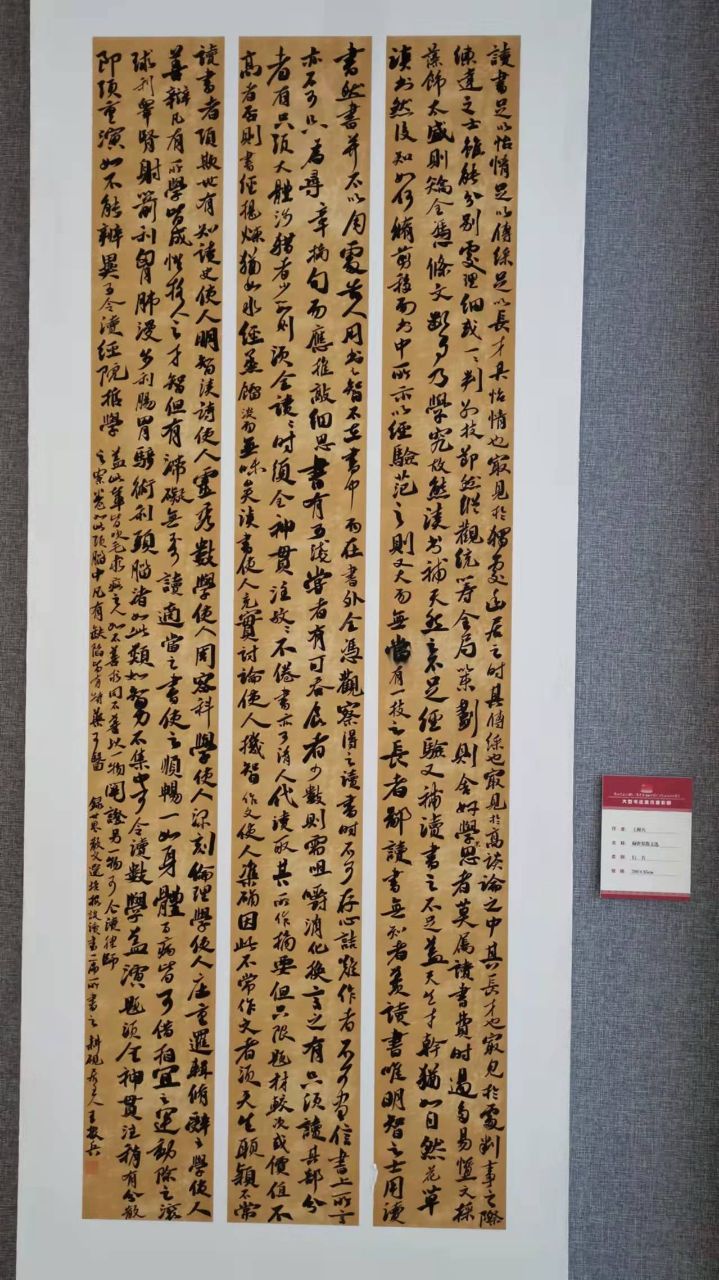 讀書足以怡情足以傅綵足以長才其怡情也最見於獨處幽居之時其傅綵也最見於高談論之中其長才也最見於處判事之際
練達之士雖能分別處理細或一一判別枝節然縱觀統籌全局策劃則舍好學思者莫屬讀書費時過多易惰文採
藻飾太盛則矯全憑條文斷事乃學究故態讀書補天然之不足經驗又補讀書之不足蓋天生才幹猶如自然花草
讀書然後知如何脩剪移而書中所示以經驗范之則又大而無當有一技之長者鄙讀書無知者羨讀書唯明智之士用讀
書然書并不以用處告人用書之智不在書中而在書外全憑觀察得之讀書時不可存心詰難作者不可盡信書上所言
亦不可只為尋章摘句而應推敲細思書有可淺嘗者有可吞食者少數則需咀嚼消化換言之有只須讀其部分
者有只須大體涉獵者少則須全讀讀時須全神貫注孜孜不倦書亦可請人代讀取其所作摘要但只限題材較次或價值不
高者否則書經提煉猶如水經蒸餾淡而無味矣讀書使人充實討論使人機智作文使人準確因此不常作文者須天生聰穎不常
讀書者須欺世有知讀史使人明智讀詩使人靈秀數學使人周密科學使人深刻倫理學使人莊重邏輯脩辭之學使人
善辯凡有所學皆成性格人之才智但有滯礙無不讀適當之書使之順暢一如身體百病皆可借相宜之運動除之滾
球利睾腎射箭利胸肺漫步利腸胃騎術利頭腦諸如此類如智力不集中可令讀數學蓋演題須全神貫注稍有分散
即須重演如不能辨異可令讀經院哲學
蓋此輩皆吹毛求疵之人如不善求同不善以一物闡證另一物可令讀律師
之案卷如此頭腦中凡有缺陷皆有特藥可醫 錄世界散文選培根談讀書一篇所書之 耕硯齋主人王敬兵
大型书法美术摄影展